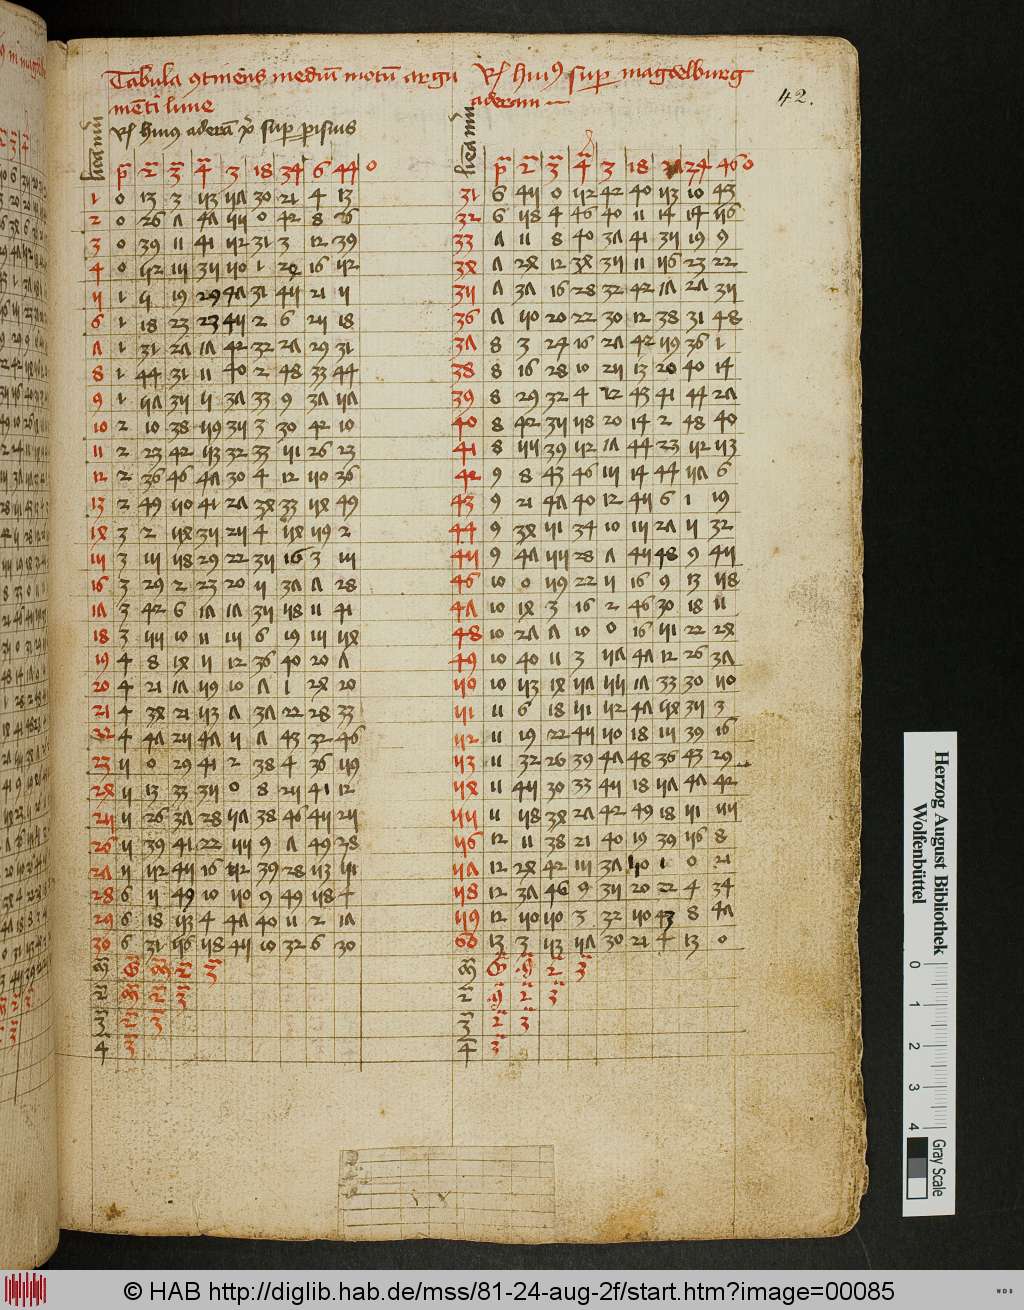 Tabula 9tinens mediu motu argu
menti lune
Rx huius aderam super parisius
linea numeri
p 2 3 4 3 18 34 6 44 0
1 0 13 3 53 57 30 21 4 13
2 0 26 7 47 55 0 42 8 26
3 0 39 11 41 52 31 3 12 39
4 0 52 15 35 50 1 24 16 52
5 1 5 19 29 47 31 45 21 5
6 1 18 23 23 45 2 6 25 18
7 1 31 27 17 42 32 27 29 31
8 1 44 31 11 40 2 48 33 44
9 1 57 35 5 37 33 9 37 57
10 2 10 38 59 35 3 30 42 10
11 2 23 42 53 32 33 51 26 23
12 2 36 46 47 30 4 12 50 36
13 2 49 50 41 27 34 33 54 49
14 3 2 54 35 25 4 54 59 2
15 3 15 58 29 22 35 16 3 15
16 3 29 2 23 20 5 37 7 28
17 3 42 6 17 17 35 58 11 41
18 3 55 10 11 15 6 19 15 54
19 4 8 14 5 12 36 40 20 7
20 4 21 17 59 10 7 1 24 20
21 4 34 21 53 7 37 22 28 33
22 4 47 25 47 5 7 43 32 46
23 5 0 29 41 2 38 4 36 59
24 5 13 33 35 0 8 25 41 12
25 5 26 37 28 57 38 46 45 25
26 5 39 41 22 55 9 7 49 28
27 5 52 45 16 52 39 28 53 51
28 6 5 49 10 50 9 49 58 4
29 6 18 53 4 47 40 11 2 17
30 6 31 56 58 45 10 32 6 30
Rx huius super magdelburg
aderam
42.
linea numeri
p 2 3 4 3 18 24 46 0
31 6 45 0 52 42 40 53 10 43
32 6 58 4 46 40 11 14 14 56
33 7 11 8 40 37 41 35 19 9
34 7 24 12 34 35 11 56 23 22
35 7 37 16 28 32 42 17 27 35
36 7 50 20 22 30 12 38 31 48
37 8 3 24 16 27 42 59 36 1
38 8 16 28 10 25 13 20 40 14
39 8 29 32 4 12 43 41 44 27
40 8 42 35 58 20 14 2 48 40
41 8 55 39 52 17 44 23 52 53
42 9 8 43 46 15 14 44 57 6
43 9 21 47 40 12 45 6 1 19
44 9 34 51 34 10 15 27 5 32
45 9 47 55 28 7 45 48 9 45
46 10 0 59 22 5 16 9 13 58
47 10 14 3 16 2 46 30 18 11
48 10 27 7 10 0 16 51 22 24
49 10 40 11 3 57 47 12 26 37
50 10 53 14 57 55 17 33 30 50
51 11 6 18 51 52 47 54 35 3
52 11 19 22 45 50 18 15 39 16
53 11 32 26 39 47 48 36 43 29
54 11 45 30 33 45 18 57 47 42
55 11 58 34 27 42 49 18 51 55
56 12 11 38 21 40 19 39 56 8
57 12 24 42 15 37 50 1 0 21
58 12 37 46 9 35 20 22 4 34
59 12 50 50 3 32 50 43 8 47
60 13 3 53 57 30 21 4 13 0
Herzog August Bibliothek
Wolfenbüttel
0 1 2 3 4
Gray Scale
© HAB http://diglib.hab.de/mss/81-24-aug-2f/start.htm?image=00085